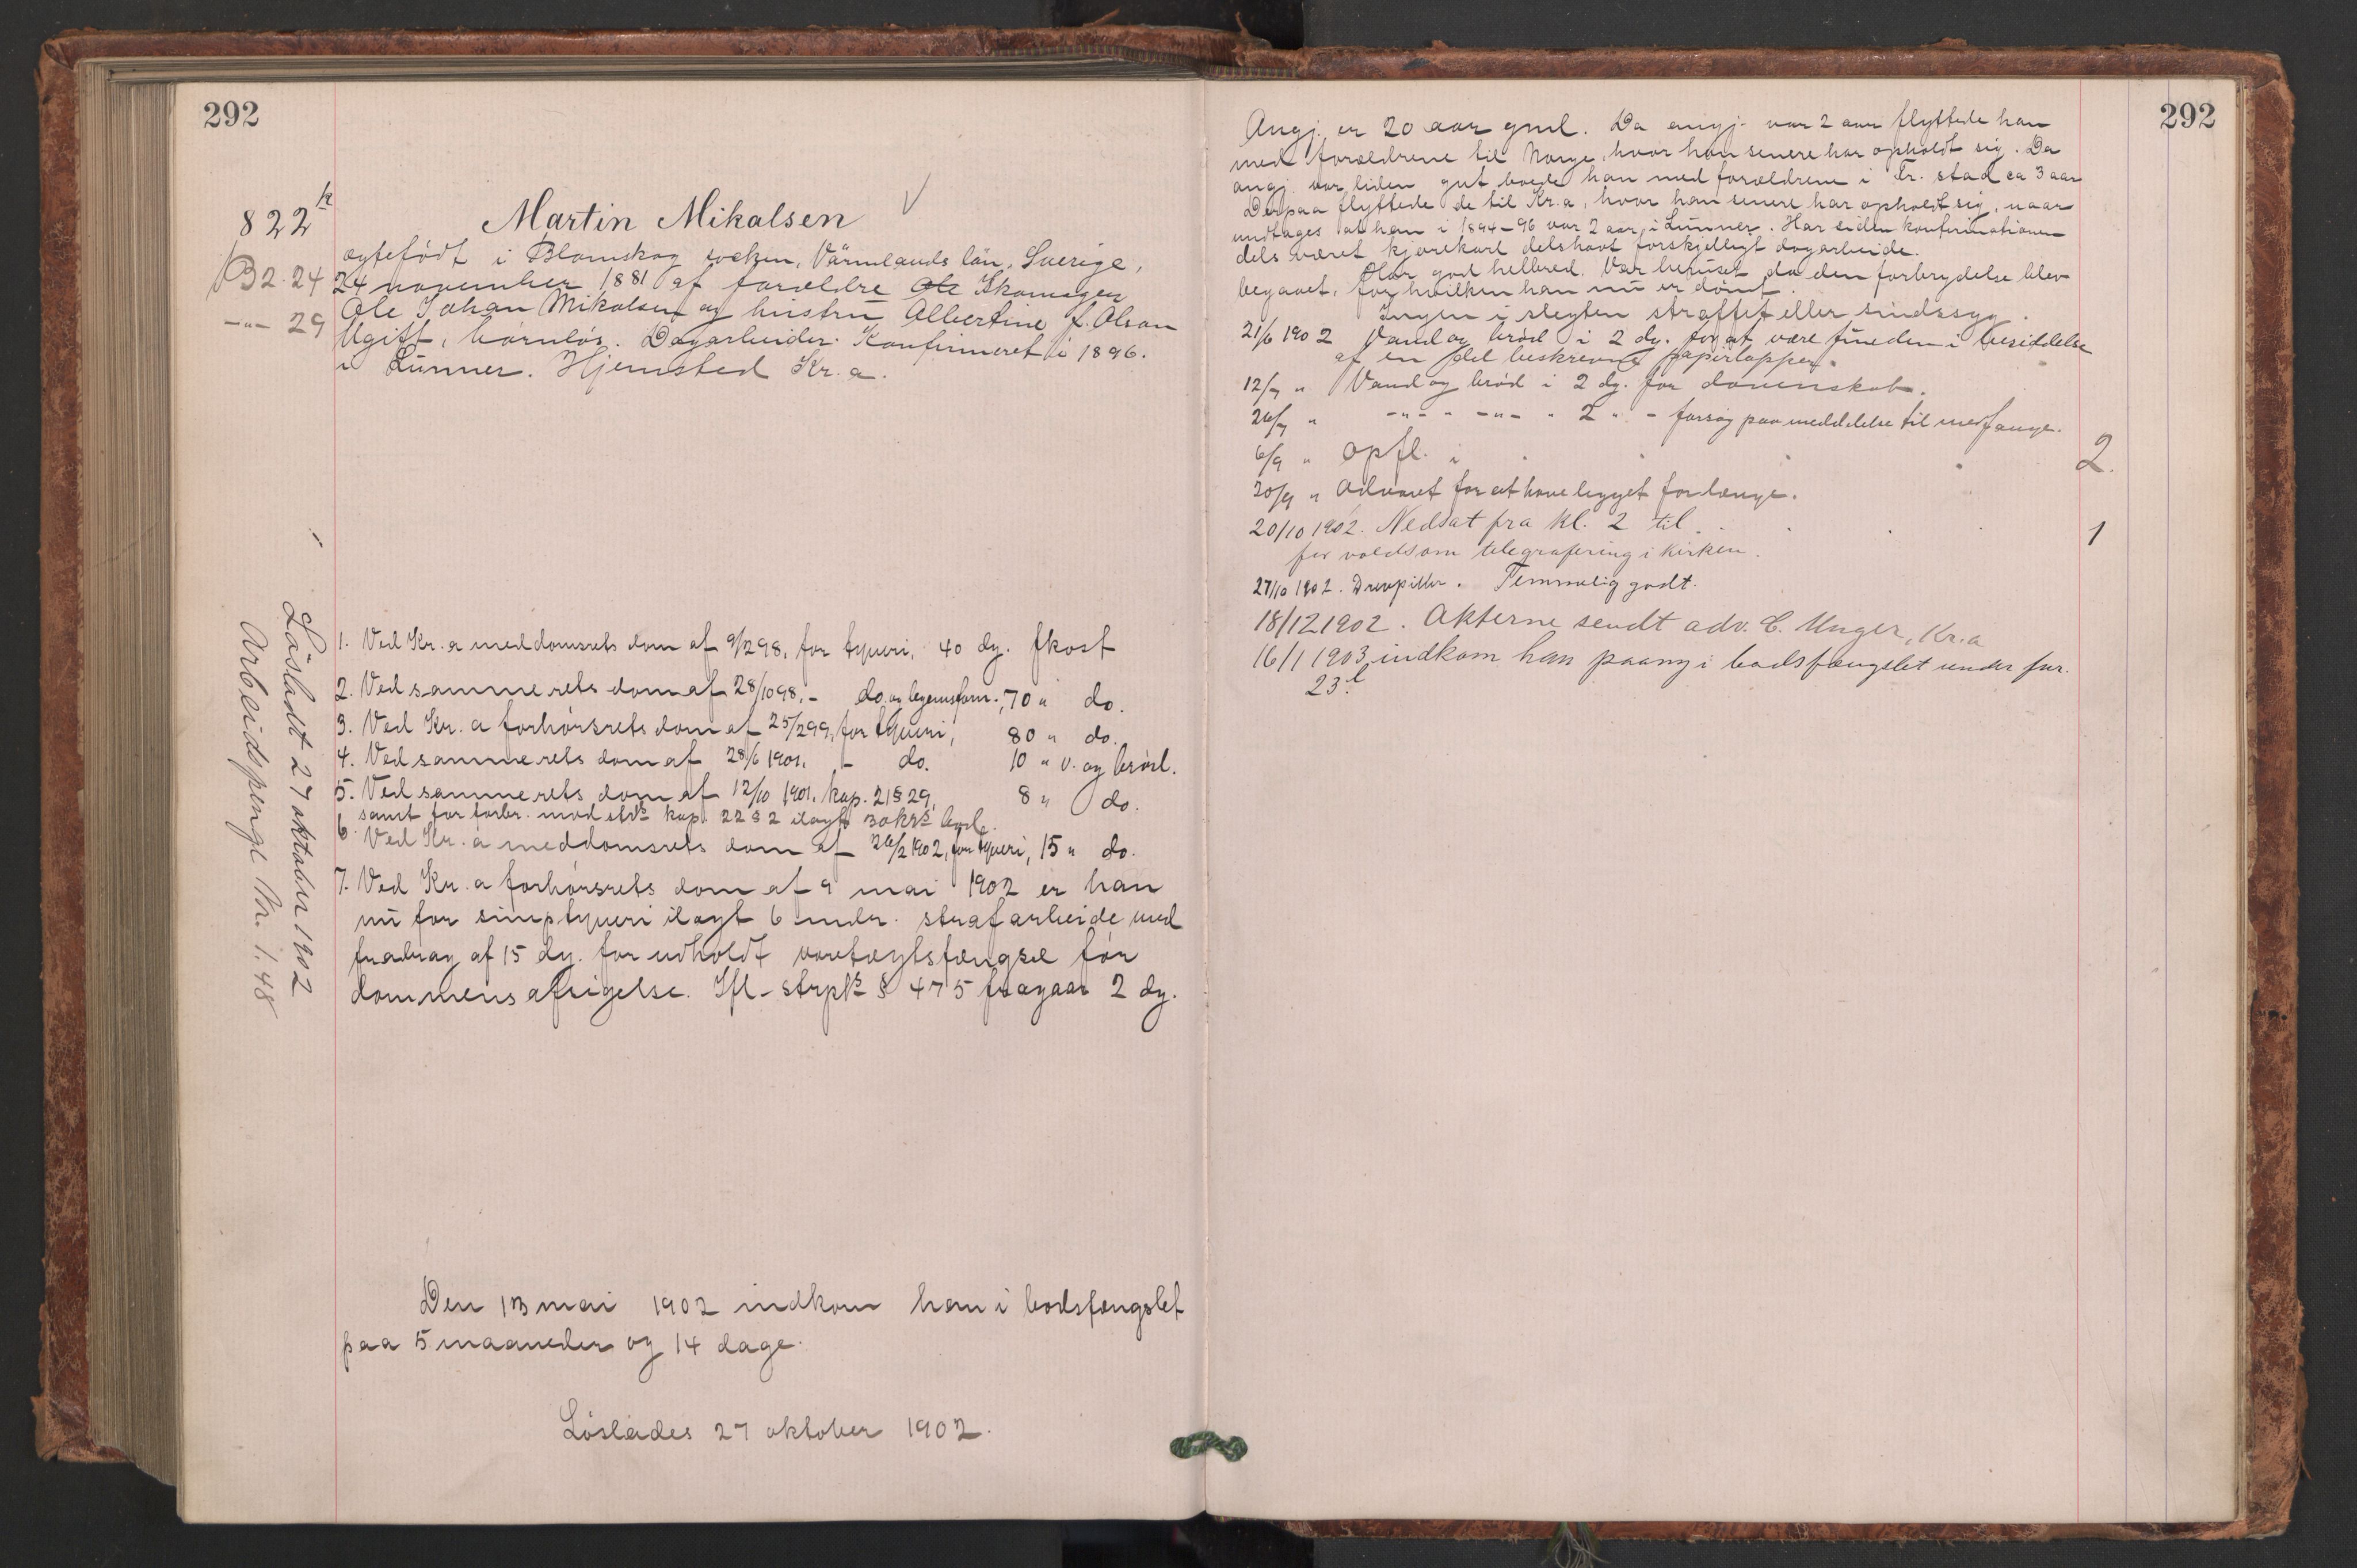 292
822 k
Martin Mikalsen
B2. 24
-"- 29
egtefødt i Blomskog socken, Värmlands län, Sverige,
24 november 1881 af forældre Skomager
Ole Johan Mikalsen og hustru Albertine f. Olson
Ugift, børnløs. Dagarbeider. Konfirmeret i 1896.
i Lunner. Hjemsted Kr.a.
1. Ved Kr.a meddomsrets dom af 9/2 98, for tyveri, 40 dg. fkost
2. Ved samme rets dom af 28/10 98, - do. og legemsforn., 70 " do.
3. Ved Kr.a forhørsrets dom af 25/2 99, for tyveri, 80 " do.
4. Ved samme rets dom af 28/6 1901, - do. 10 " v. og brød.
5. Ved samme rets dom af 12/10 1901, kap. 21 § 29, 8 " do.
samt for forbr. mod strls kap. 22 § 2 ilagt 30 krs bod.
6. Ved Kr.a meddomsrets dom af 26/2 1902, for tyveri, 15 " do.
7. Ved Kr.a forhørsrets dom af 9 mai 1902 er han
nu for simp tyveri ilagt 6 mdr. strafarbeide med
fradrag af 15 dg. for udholdt varetægtsfængsel før
dommens afsigelse. Ifl. strpls § 475 fragaar 2 dg.
Løsladt 27 oktober 1902
Arbeidspenge Kr. 1.48
Den 13 mai 1902 indkom han i bodsfængslet
paa 5 maaneder og 14 dage.
Løslades 27 oktober 1902.
292
Angj. er 20 aar gml. Da angj. var 2 aar flyttede han
med forældrene til Norge, hvor han senere har opholdt sig. Da
angj. var liden gut boede han med forældrene i Fr. stad ca 3 aar
Derpaa flyttede de til Kr.a, hvor han senere har opholdt sig, naar
undtages at han i 1894-96 var 2 aar i Lunner. Har siden konfirmationen
dels været kjørekarl dels havt forskjelligt dagarbeide.
Har god helbred. Var beruset da den forbrydelse blev
begaaet, for hvilken han nu er dømt.
Ingen i slegten straffet eller sindssyg.
21/6 1902 Vand og brød i 2 dg. for at være funden i besiddelse
af en del beskrevne papirlapper.
12/7 " Vand og brød i 2 dg. for dovenskab.
26/7 " -"- " -"- " 2 " - forsøg paa meddelelse til medfange.
6/9 " Opfl. i 2.
20/9 " Advaret for at have ligget for længe.
20/10 1902. Nedsat fra kl. 2 til 1
for voldsom telegrafering i kirken.
27/10 1902. Drevpiller. Temmelig godt.
18/12 1902. Akterne sendt adv. C. Unger, Kr.a
16/1 1903 indkom han paany i bodsfængslet under fnr.
23 l